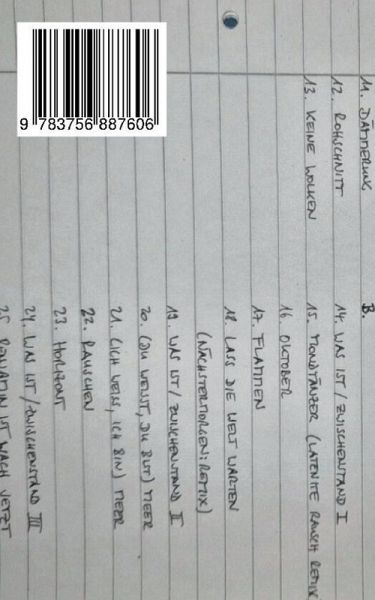 9 783756 887606
11. DÄMMERUNG
12. ROHSCHNITT
13. KEINE WOLKEN
B.
14. WAS IST / ZWISCHENSTAND I
15. MONDTÄNZER (LATENITE RAUSCH REMIX
16. OKTOBER
17. FLAMMEN
18. LASS DIE WELT WARTEN
(NÄCHSTERMORGEN: REMIX)
19. WAS IST / ZWISCHENSTAND II
20. (DU WEISST, DU BIST) MEER
21. (ICH WEISS, ICH BIN) MEER
22. RAUSCHEN
23. HORIZONT
24. WAS IST / ZWISCHENSTAND III
25. IST WACH JETZT